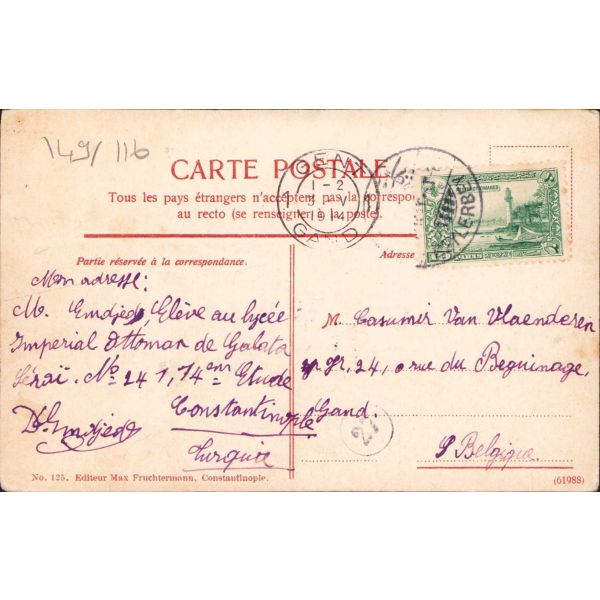 149/116
CARTE POSTALE
Tous les pays étrangers n'acceptent pas la correspon
au recto (se renseigner à la poste).
GENT
1-2
5 V
1914
GAND
Partie réservée à la correspondance.
Adresse
Mon adresse:
M. Emdjed, Elève au lycée
Imperial Ottoman de Galata
Séraï. No 241, 14em Etude
Constantinople
Turquie
Dj. Emdjed
M. Casumir Van Vlaenderen
gr, 24, rue du Beguinage,
Gand.
Belgique.
27
No. 125. Editeur Max Fruchtermann, Constantinople.
(61988)